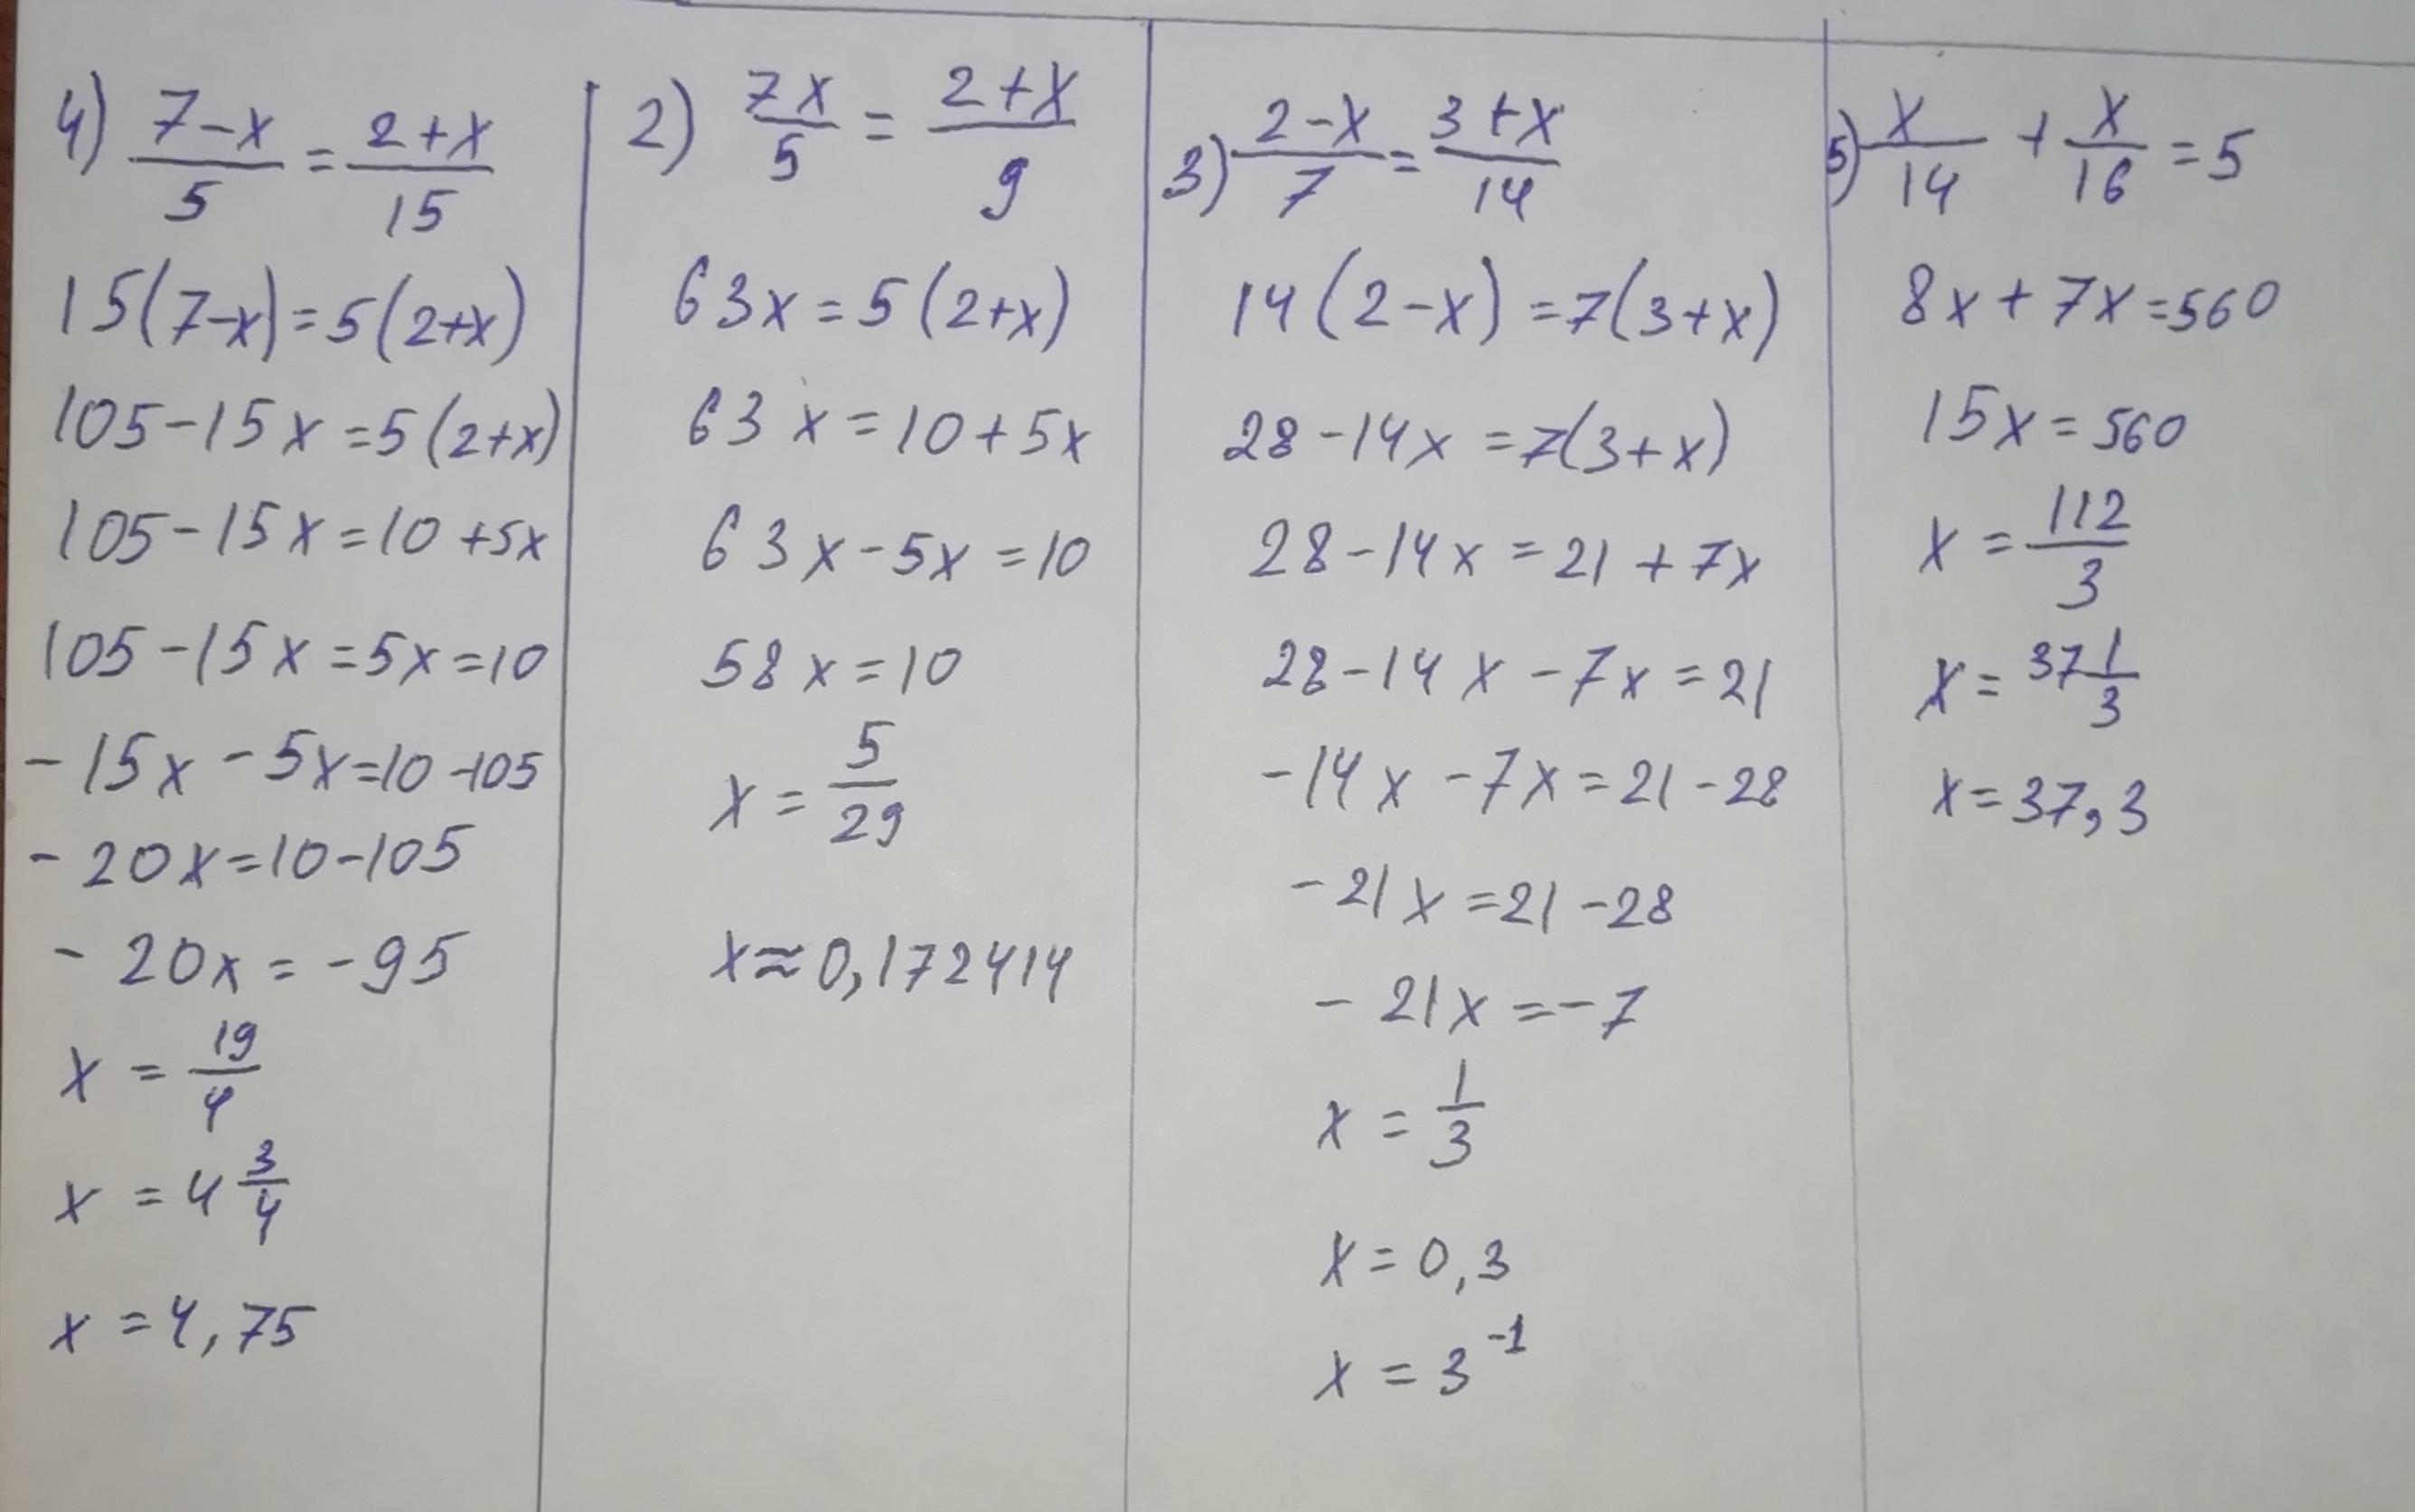 4) (7-x)/5 = (2+x)/15
15(7-x)=5(2+x)
105-15x=5(2+x)
105-15x=10+5x
105-15x=5x=10
-15x-5x=10-105
-20x=10-105
-20x=-95
x=19/4
x=4 3/4
x=4,75
2) 7x/5 = (2+x)/9
63x=5(2+x)
63x=10+5x
63x-5x=10
58x=10
x=5/29
x≈0,172414
3) (2-x)/7 = (3+x)/14
14(2-x)=7(3+x)
28-14x=7(3+x)
28-14x=21+7x
28-14x-7x=21
-14x-7x=21-28
-21x=21-28
-21x=-7
x=1/3
x=0,3
x=3⁻¹
5) x/14 + x/16 = 5
8x+7x=560
15x=560
x=112/3
x=37 1/3
x=37,3